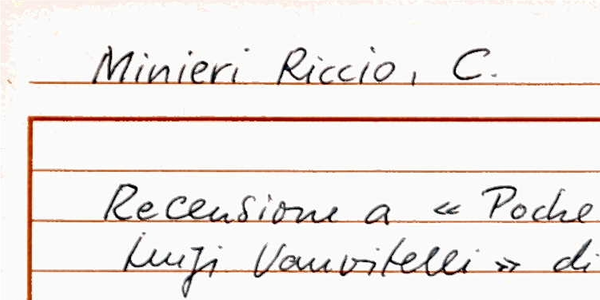 Minieri Riccio, C.
Recensione a « Poche
Luigi Vanvitelli » di